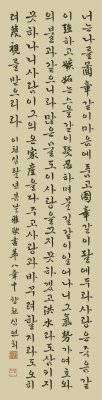 너는나를圖章같이마음에품고圖章같이팔에두라사랑은죽음같
이强하고嫉妬는스올같이殘忍하며불길같이일어나니그氣勢가여호와
의불과같으니라많은물도이사랑을끄지못하겠고洪水라도삼키지
못하나니사람이그의온家産을다주고사랑과바꾸려할지라도오히
려蔑視를받으리라